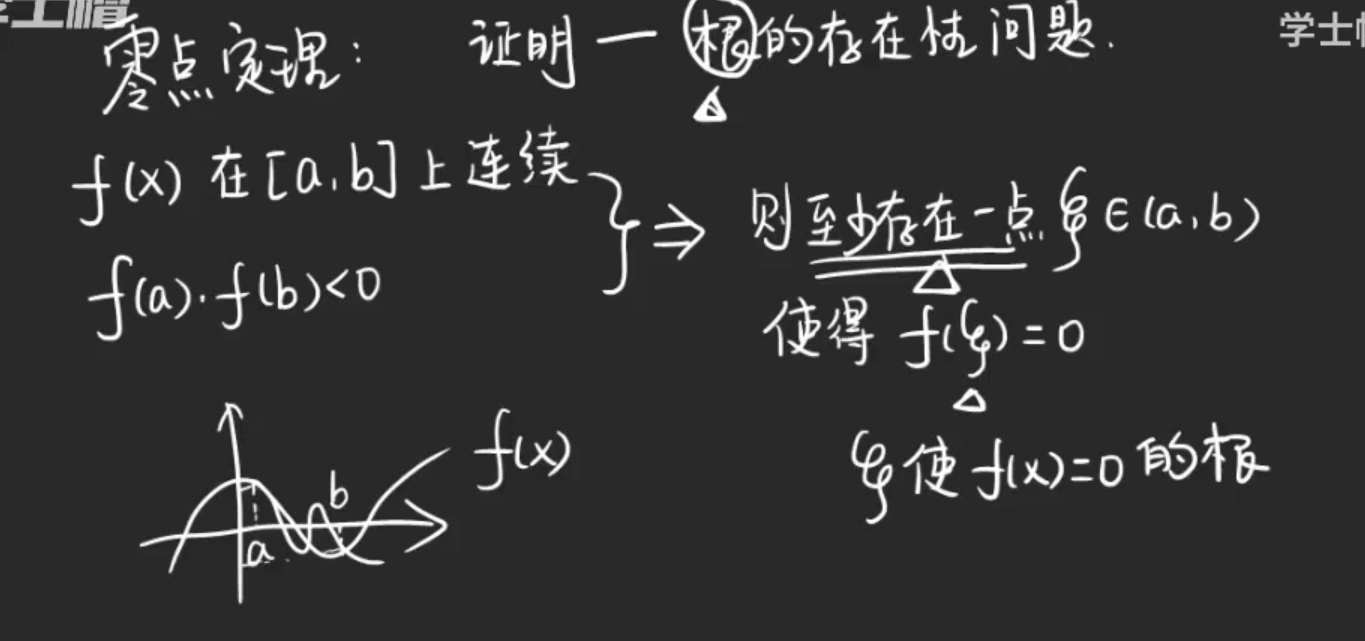 学士帽
学士
零点定理: 证明 — 根的存在性问题.
f(x) 在[a,b]上连续
f(a)·f(b)<0
} ⇒ 则至少存在一点 ξ∈(a,b)
使得 f(ξ)=0
ξ使f(x)=0的根
f(x)
b
a